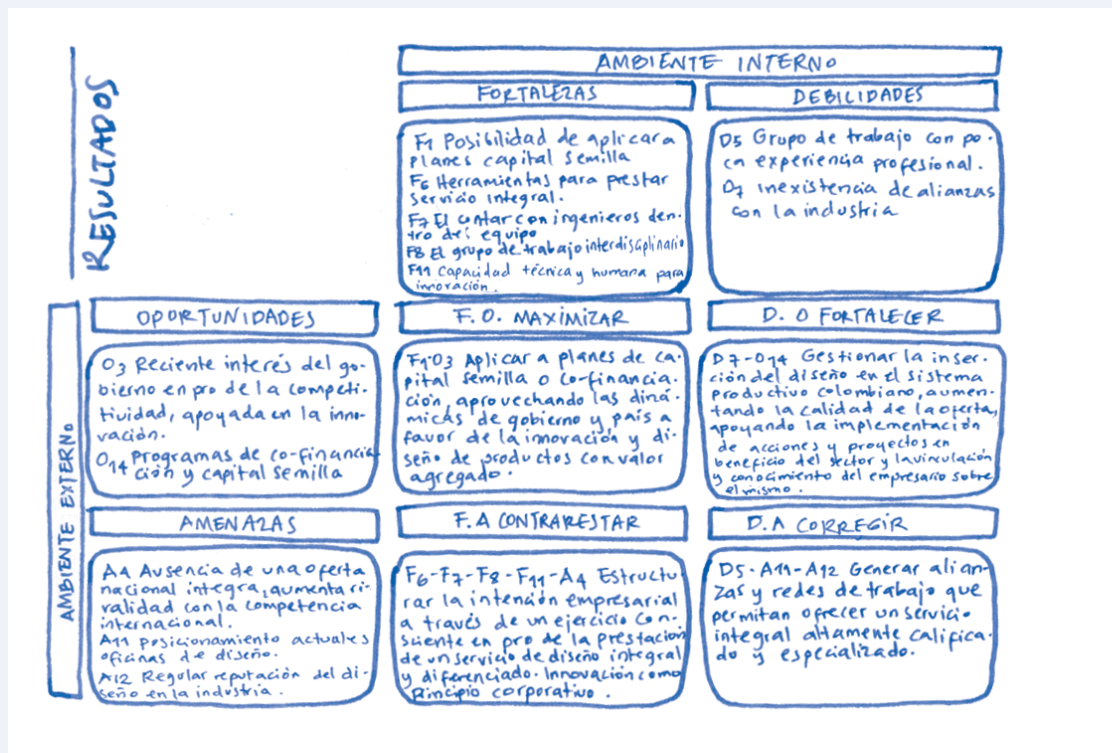 RESULTADOS
AMBIENTE INTERNO
FORTALEZAS
F1 Posibilidad de aplicar a
planes capital semilla
F6 Herramientas para prestar
servicio integral.
F7 El contar con ingenieros den-
tro del equipo
F8 El grupo de trabajo interdisciplinario
F11 Capacidad técnica y humana para
innovación.
DEBILIDADES
D5 Grupo de trabajo con po-
ca experiencia profesional.
D7 Inexistencia de alianzas
con la industria
AMBIENTE EXTERNO
OPORTUNIDADES
O3 Reciente interés del go-
bierno en pro de la competi-
tividad, apoyada en la inno-
vación.
O14 Programas de co-financia
ción y capital semilla
F.O. MAXIMIZAR
F1-O3 Aplicar a planes de ca-
pital semilla o co-financia-
ción, aprovechando las diná-
micas de gobierno y país a
favor de la innovación y di-
seño de productos con valor
agregado.
D.O FORTALECER
D7-O14 Gestionar la inser-
ción del diseño en el sistema
productivo colombiano, aumen-
tando la calidad de la oferta,
apoyando la implementación
de acciones y proyectos en
beneficio del sector y la vinculación
y conocimiento del empresario sobre
el mismo.
AMENAZAS
A4 Ausencia de una oferta
nacional integra, aumenta ri-
validad con la competencia
internacional.
A11 posicionamiento actuales
oficinas de diseño.
A12 Regular reputación del di-
seño en la industria.
F.A CONTRARESTAR
F6-F7-F8-F11-A4 Estructu-
rar la intención empresarial
a través de un ejercicio con-
sciente en pro de la prestación
de un servicio de diseño integral
y diferenciado. Innovación como
Principio corporativo.
D.A CORREGIR
D5-A11-A12 Generar alian-
zas y redes de trabajo que
permitan ofrecer un servicio
integral altamente califica-
do y especializado.